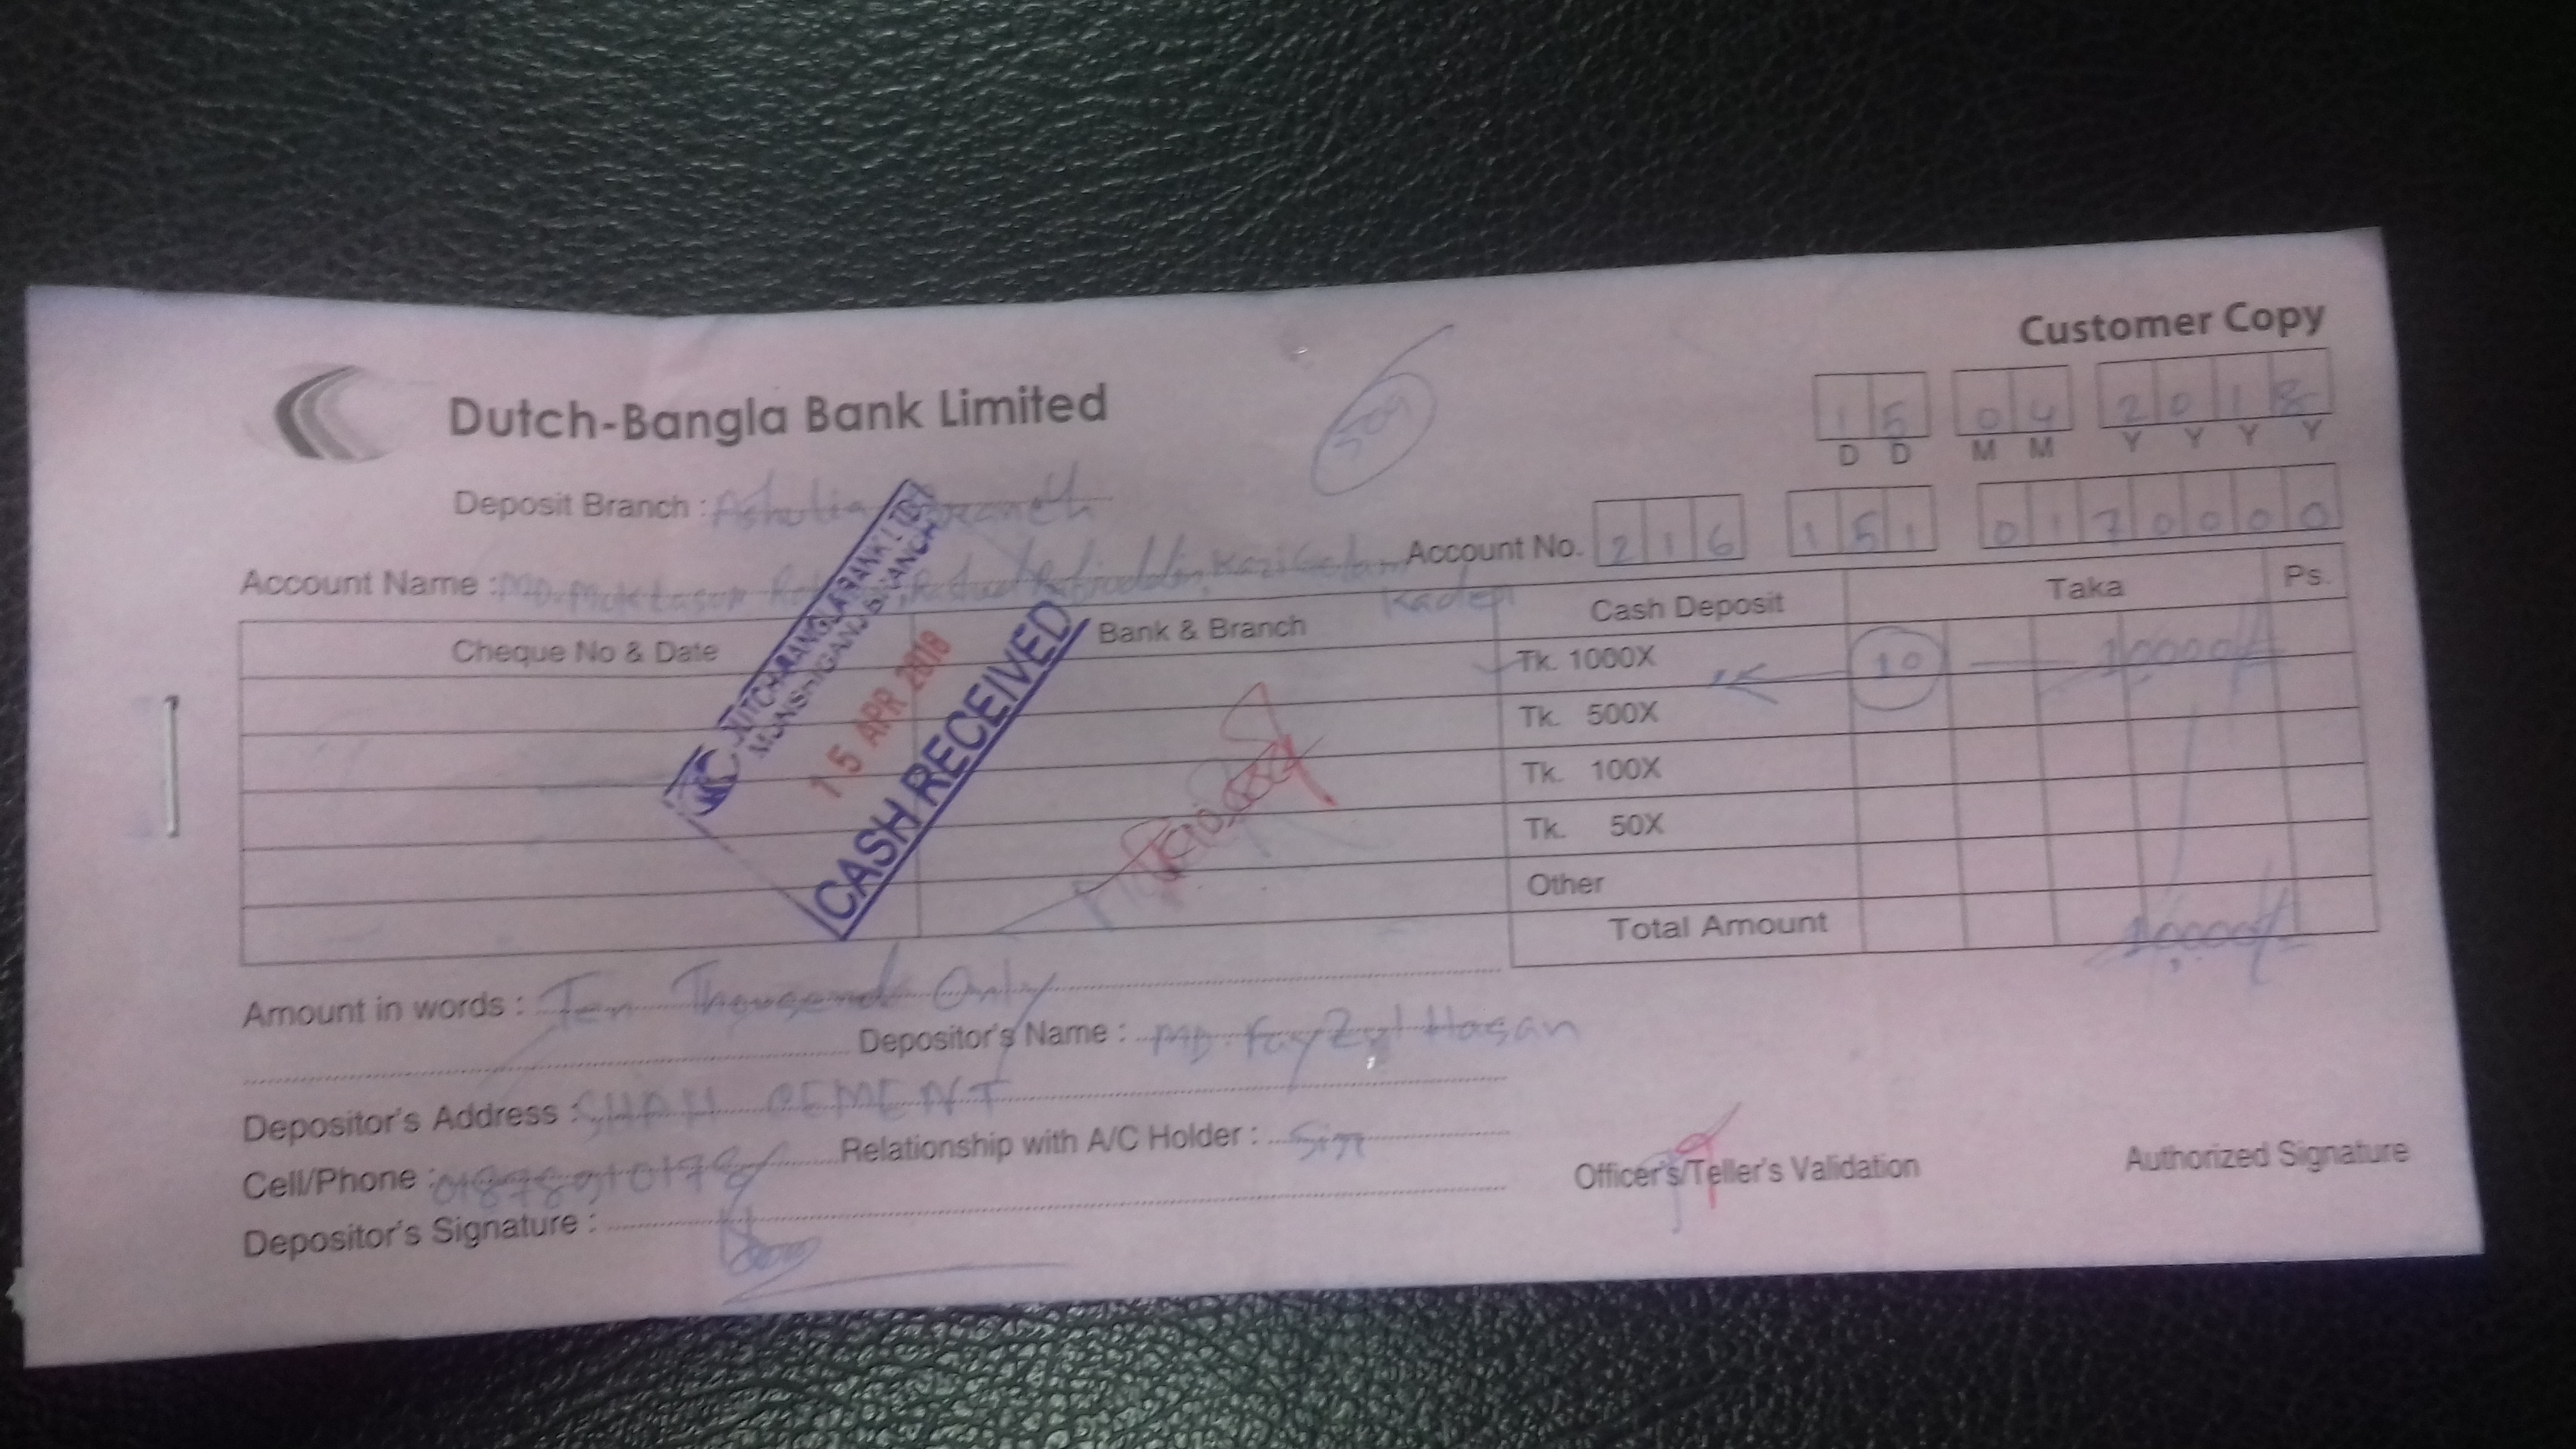 Customer Copy
Dutch-Bangla Bank Limited
15 04 2018
D D M M Y Y Y Y
Deposit Branch : Ashulia Branch
Account No. 216 151 0170000
Account Name : MD.
Kader
Cheque No & Date
Bank & Branch
Cash Deposit
Taka
Ps.
Tk. 1000X 10 10,000/-
Tk. 500X
Tk. 100X
Tk. 50X
Other
Total Amount 10,000/-
DUTCH-BANGLA BANK LTD.
MUNSHIGANJ BRANCH
15 APR 2018
CASH RECEIVED
Amount in words : Ten Thousand Only
Depositor's Name : MD. Fayzul Hasan
Depositor's Address : SHAH CEMENT
Cell/Phone :
Relationship with A/C Holder :
Depositor's Signature :
Officer's/Teller's Validation
Authorized Signature